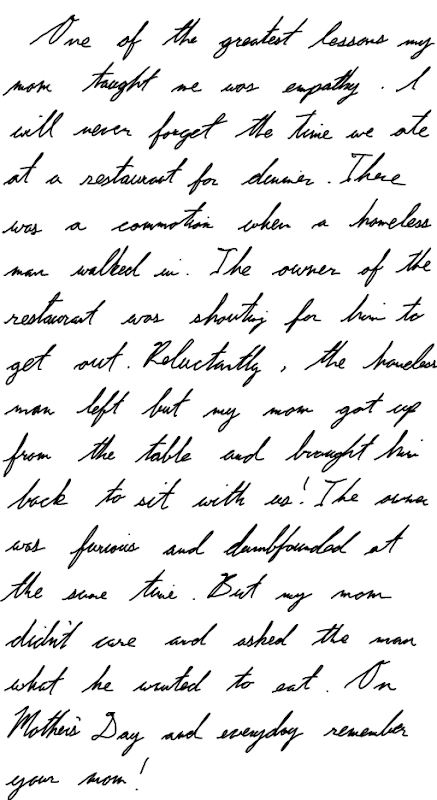 One of the greatest lessons my
mom taught me was empathy. I
will never forget the time we ate
at a restaurant for dinner. There
was a commotion when a homeless
man walked in. The owner of the
restaurant was shouting for him to
get out. Reluctantly, the homeless
man left but my mom got up
from the table and brought him
back to sit with us! The owner
was furious and dumbfounded at
the same time. But my mom
didn't care and asked the man
what he wanted to eat. On
Mother's Day and everyday remember
your mom!